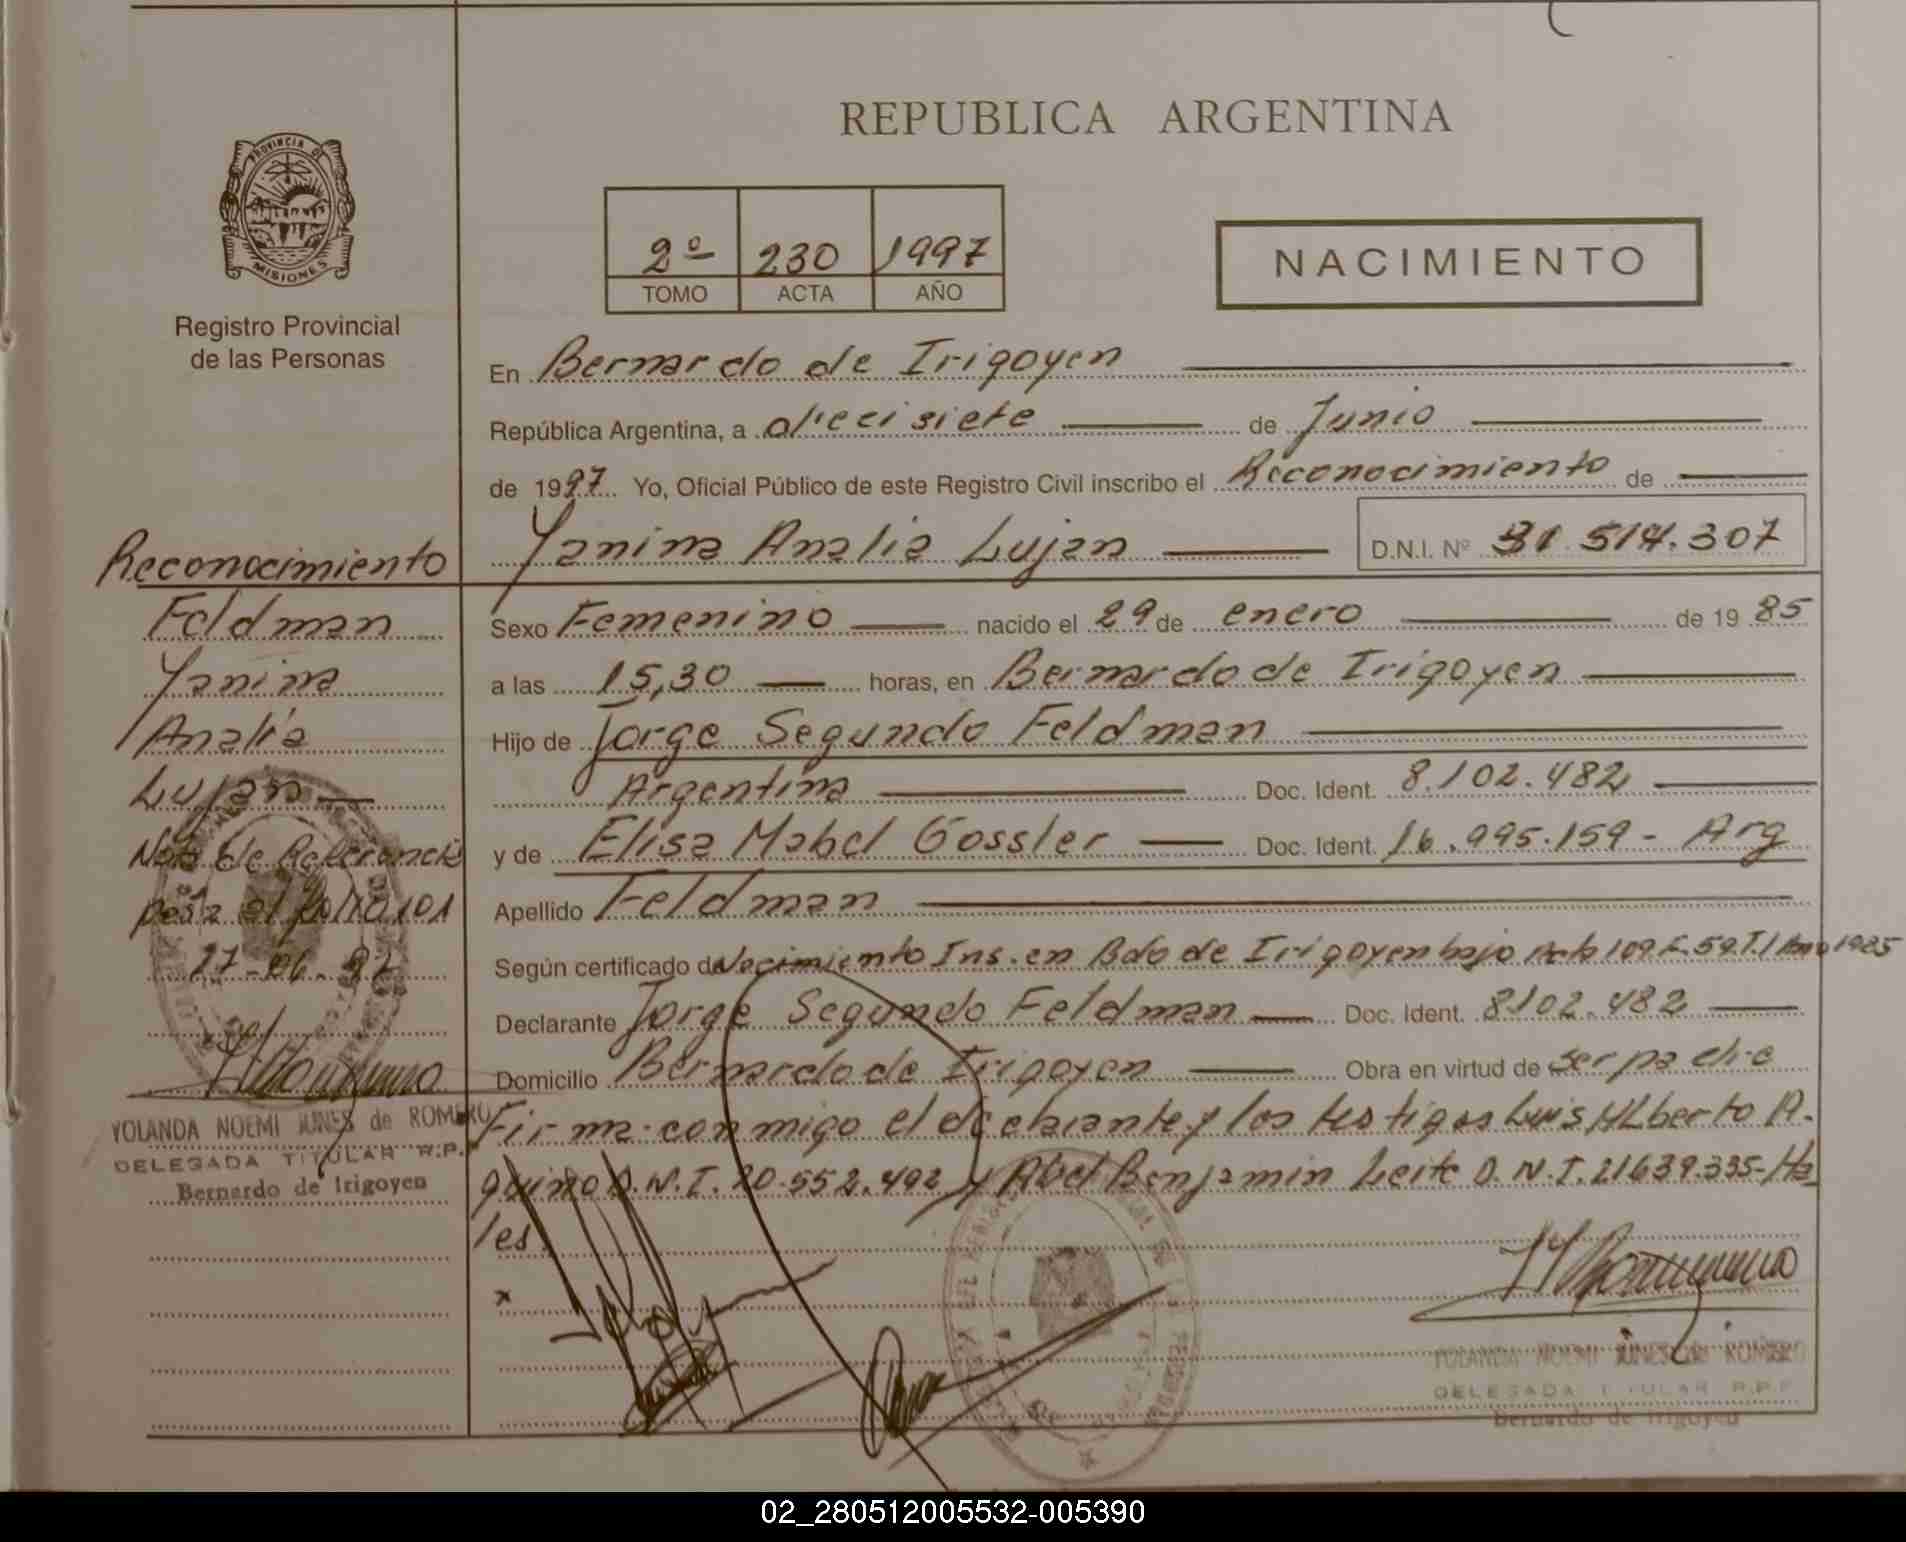 REPUBLICA ARGENTINA
PROVINCIA DE
MISIONES
Registro Provincial
de las Personas
2º 230 1997
TOMO ACTA AÑO
NACIMIENTO
En Bernardo de Irigoyen
República Argentina, a diecisiete de Junio
de 1997 Yo, Oficial Público de este Registro Civil inscribo el Reconocimiento de
Yanina Analia Lujan D.N.I. Nº 31.514.307
Reconocimiento
Feldman
Yanina
Analía
Lujan
Nota de Referencia
pasa al folio 101
17-06-97
YOLANDA NOEMI JUNES de ROMERO
DELEGADA TITULAR R.P.P.
Bernardo de Irigoyen
Sexo Femenino nacido el 29 de enero de 1985
a las 15,30 horas, en Bernardo de Irigoyen
Hijo de Jorge Segundo Feldman
Argentina Doc. Ident. 8.102.482
y de Elisa Mabel Gossler Doc. Ident. 16.995.159 - Arg
Apellido Feldman
Según certificado de Nacimiento Ins. en Bdo de Irigoyen bajo Acta 109 F. 59 T. I Año 1985
Declarante Jorge Segundo Feldman Doc. Ident. 8102.482
Domicilio Bernardo de Irigoyen Obra en virtud de ser padre
Firma conmigo el declarante y los testigos Luis Alberto A-
quino D.N.I. 20.552.492 y Abel Benjamin Leite D.N.I. 21639.335- Ha
les
x
YOLANDA NOEMI JUNES de ROMERO
DELEGADA TITULAR R.P.P.
Bernardo de Irigoyen
02_280512005532-005390